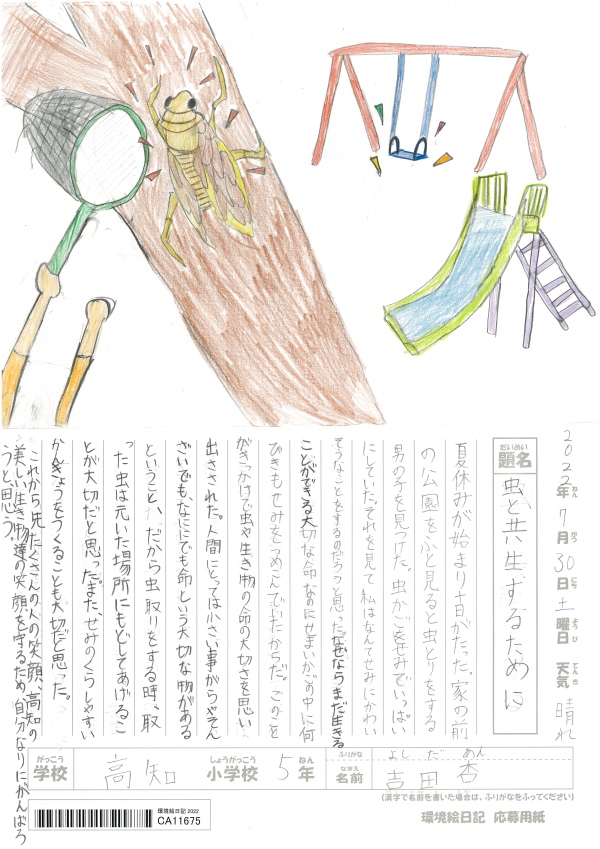 2022年ねん 7月がつ 30日にち 土曜日ようび 天気てんき 晴れ
だいめい
題名 虫と共生するために
夏休みが始まり十日がたった。家の前
の公園をふと見ると虫とりをする
男の子を見つけた。虫かごをせみでいっぱい
にしていた。それを見て私はなんてせみにかわい
そうなことをするのだろうと思った。なぜならまだ生きる
ことができる大切な命なのにせまいかごの中に何
びきもせみをつめこんでいたからだ。このこと
がきっかけで虫や生き物の命の大切さを思い
出さされた。人間にとっては小さい事がらやそん
ざいでも、なにに でも命という大切な物がある
ということ、だから虫取りをする時、取
った虫は元いた場所にもどしてあげるこ
とが大切だと思った。また、せみのくらしやすい
かんきょうをつくることも大切だと思った。
これから先、たくさんの人の笑顔、高知の
美しい生き物達の笑顔を守るため、自分なりにがんばろ
うと、思う。
がっこう
学校 高知 しょうがっこう 小学校 5 ねん 年
ふりがな よしだ めん
なまえ
名前 吉田 杏
(漢字で名前を書いた場合は、ふりがなをふってください)
環境絵日記 2022
CA11675
環境絵日記 応募用紙